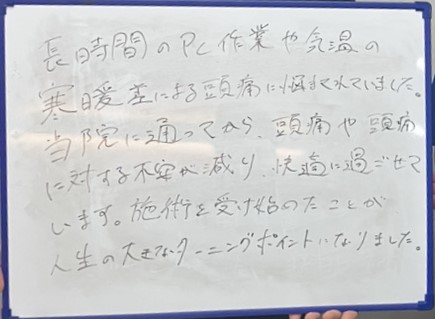 長時間のPC作業や気温の
寒暖差による頭痛に悩まされていました。
当院に通ってから、頭痛や頭痛
に対する不安が減り、快適に過ごせて
います。施術を受け始めたことが
人生の大きなターニングポイントになりました。